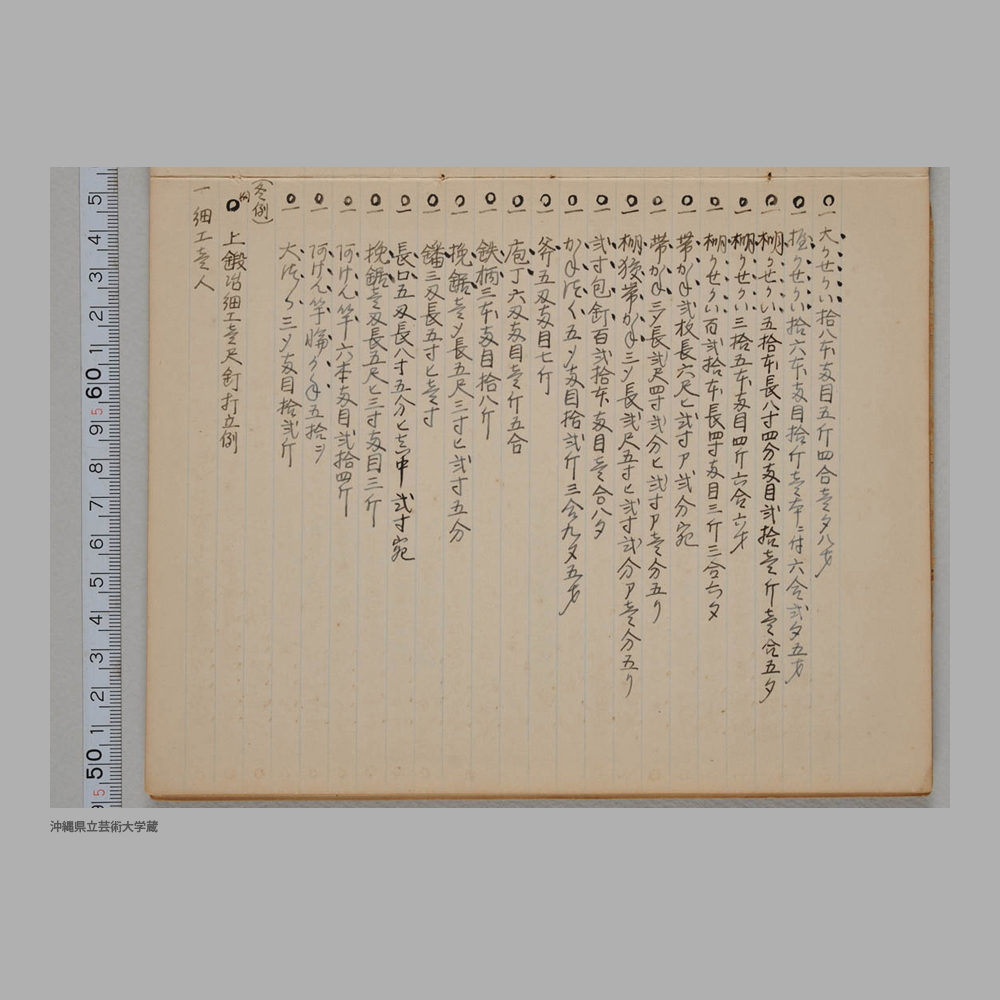 一 大かせかい拾八本友目五斤四合壱夕八才
一 かせかい拾六本友目拾斤壱本ニ付六合弐夕五才
一 棚かせかい五拾本長八寸四分友目弐拾壱斤壱合五夕
一 棚かせかい三拾五本友目四斤六合六才
一 棚かせかい百弐拾本長四寸友目三斤三合六夕
一 帯かね弐枚長六尺ヒ弐寸ア弐分宛
一 帯かね三ツ長弐尺四寸弐分ヒ弐寸ア壱分五リ
一 棚狡帯かね三ツ長弐尺五寸ヒ弐寸弐分ア壱分五リ
一 弐寸包釘百弐拾本友目壱合八夕
一 かね 五ツ友目拾弐斤三合九夕五才
一 斧五刃友目七斤
一 庖丁六刃友目壱斤五合
一 鉄柄三本友目拾八斤
一 挽鋸壱ツ長五尺三寸ヒ弐寸五分
一 鐇三刃長五寸ヒ壱寸
一 長口五刃長八寸五分ヒ 中弐寸宛
一 挽鋸壱刃長五尺ヒ三寸友目三斤
一 阿けん竿六本友目弐拾四斤
一 阿けん竿 かね五拾ヲ
一 大 三ツ友目拾弐斤
(冬例)
上鍛冶細工壱尺釘打立例
一 細工壱人
5 4 3 2 1 60 9 8 7 6 5 4 3 2 1 50
沖縄県立芸術大学蔵